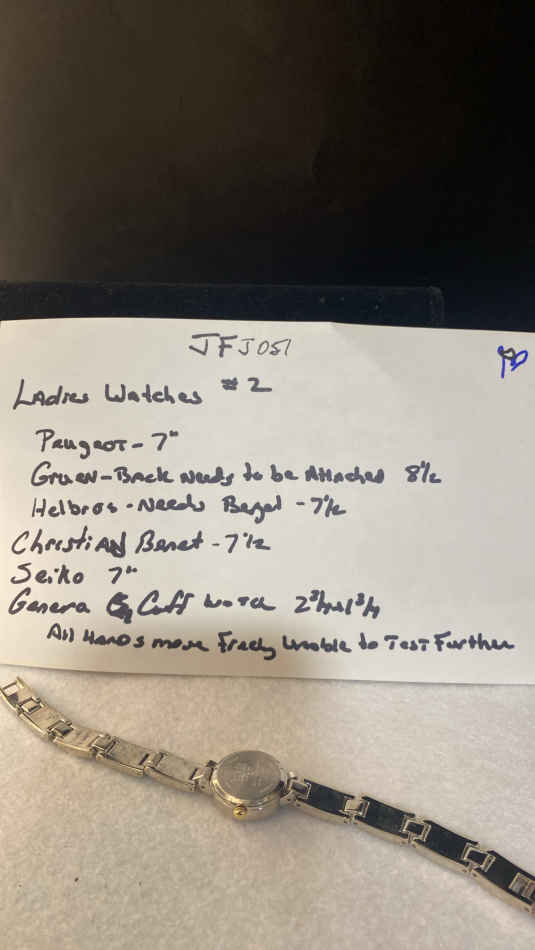 JFJ051
Ladies Watches #2
Peugeot - 7"
Gruen - Back needs to be Attached 8½
Helbros - Needs Bezel - 7½
Christian Benet - 7½
Seiko 7"
Geneva Cuff watch
All Hands move Freely Unable to Test Further